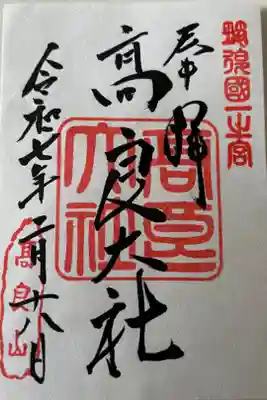 筑後國一之宮
奉拝
高良大社
高良大社
令和七年二月十八日
高良山